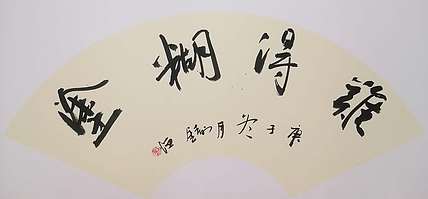 難得糊塗
庚子冬月